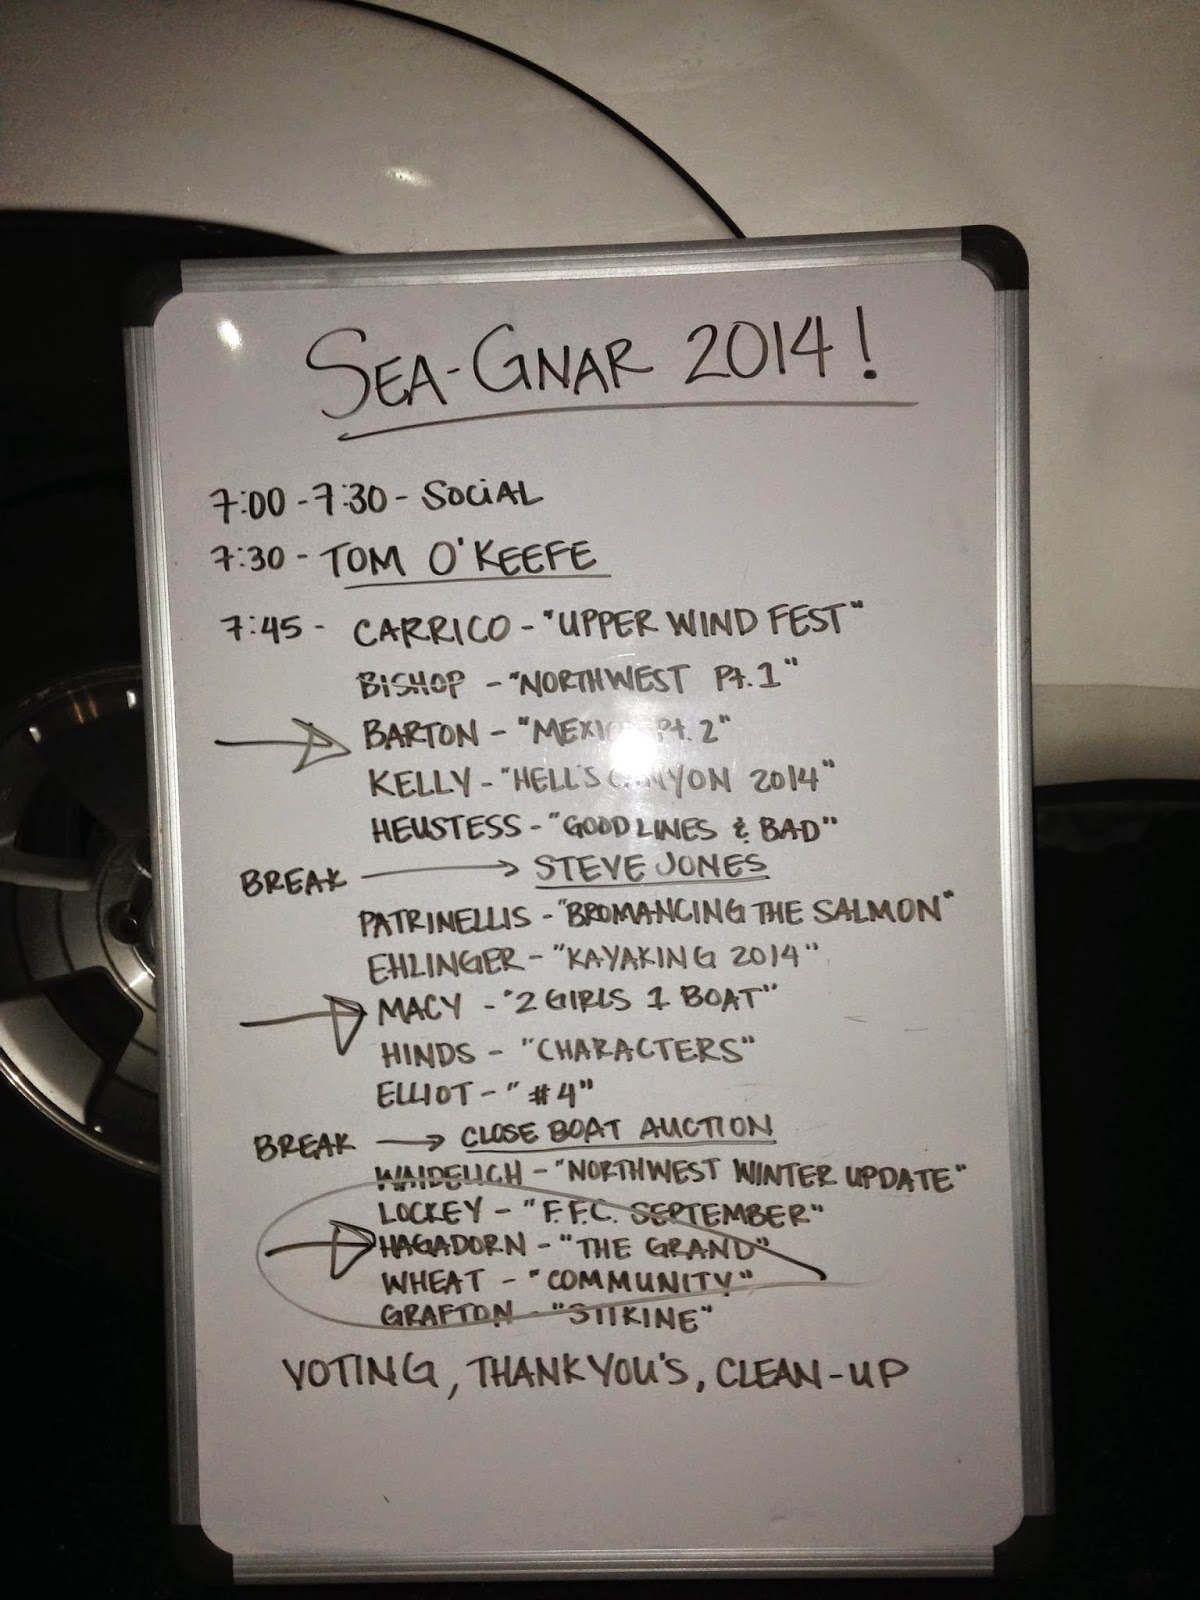 SEA-GNAR 2014!
7:00 - 7:30 - SOCIAL
7:30 - TOM O'KEEFE
7:45 - CARRICO - "UPPER WIND FEST"
BISHOP - "NORTHWEST Pt. 1"
BARTON - "MEXICO Pt. 2"
KELLY - "HELL'S CANYON 2014"
HEUSTESS - "GOOD LINES & BAD"
BREAK → STEVE JONES
PATRINELLIS - "BROMANCING THE SALMON"
EHLINGER - "KAYAKING 2014"
MACY - "2 GIRLS 1 BOAT"
HINDS - "CHARACTERS"
ELLIOT - "#4"
BREAK → CLOSE BOAT AUCTION
WAIDELICH - "NORTHWEST WINTER UPDATE"
LOCKEY - "F.F.C. SEPTEMBER"
HAGADORN - "THE GRAND"
WHEAT - "COMMUNITY"
GRAFTON - "STIKINE"
VOTING, THANK YOU'S, CLEAN-UP